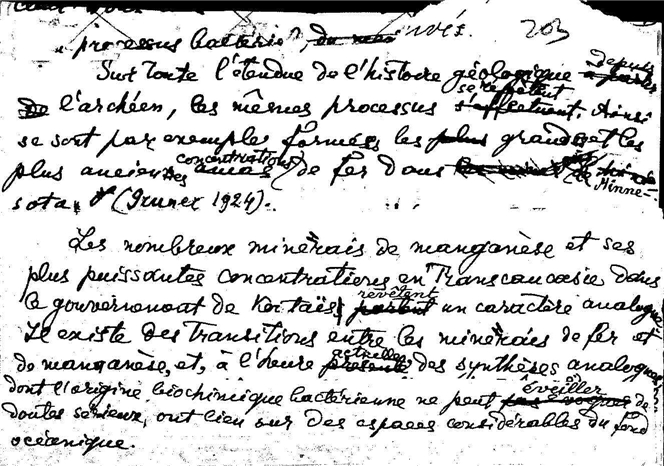 203
processus bactérie
Sur toute l'étendue de l'histoire géologique depuis
l'archéen, les mêmes processus se répètent. Ainsi
se sont par exemple formées les grandes et les
plus anciennes concentrations de fer dans
Minne-
sota (Gruner 1924).
Les nombreux minérais de manganèse et ses
plus puissantes concentrations en Transcaucasie dans
le gouvernement de Koutaïs revêtent un caractère analogue
Il existe des transitions entre les minérais de fer et
de manganèse, et, à l'heure actuelle, des synthèses analogues
dont l'origine biochimique bactérienne ne peut éveiller de
doutes sérieux, ont lieu sur des espaces considérables du fond
océanique.